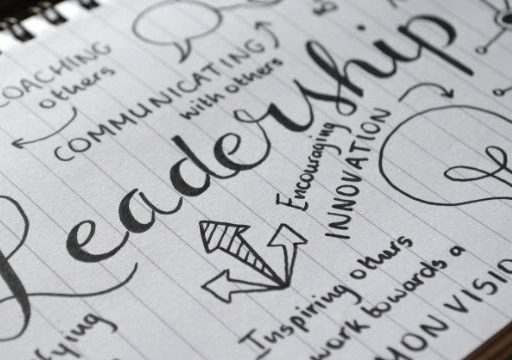 COACHING
others
COMMUNICATING
with others
Leadership
Encouraging
INNOVATION
Inspiring others
work towards a